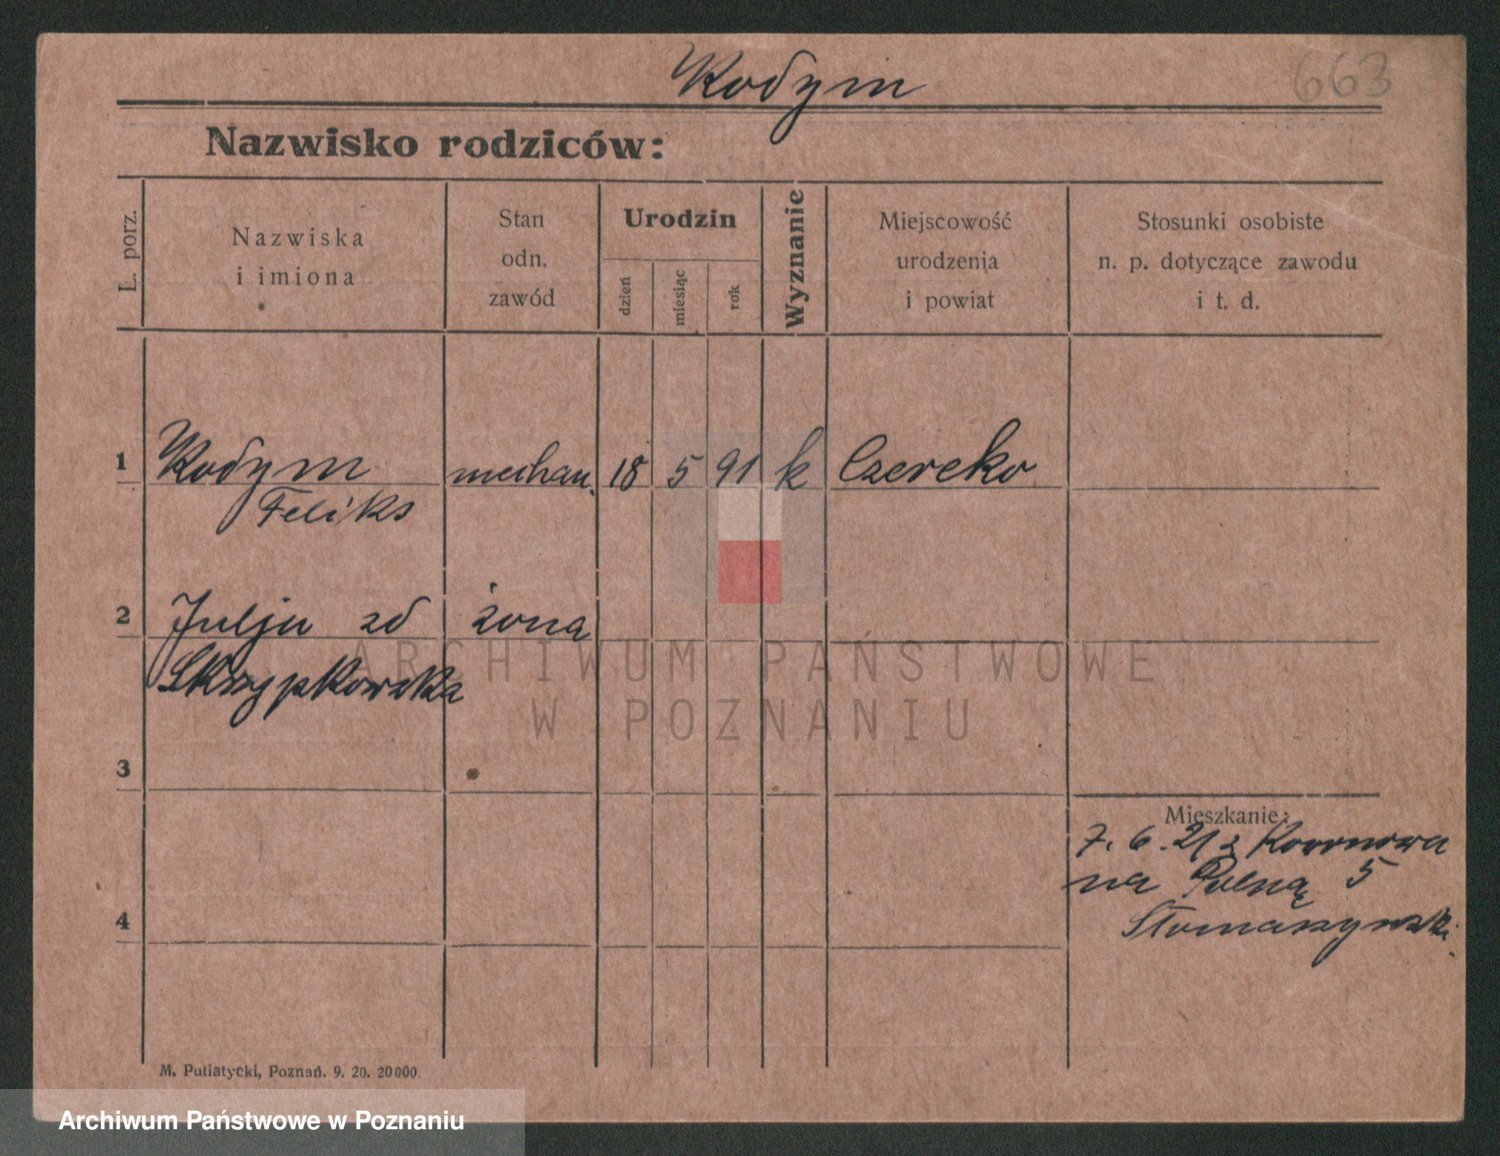 Rodym
663
Nazwisko rodziców:
L. porz.
Nazwiska
i imiona
Stan
odn.
zawód
Urodzin
dzień
miesiąc
rok
Wyznanie
Miejscowość
urodzenia
i powiat
Stosunki osobiste
n. p. dotyczące zawodu
i t. d.
1 Rodym mechan. 18 5 91 k Czereko
Feliks
2 Julja zd żona
Skrzypkowska
3
Mieszkanie:
7. 6. 21 z
na Polną 5
Słomaszynski
4
M. Putiatycki, Poznań. 9. 20. 20000.
ARCHIWUM PAŃSTWOWE
W POZNANIU
Archiwum Państwowe w Poznaniu